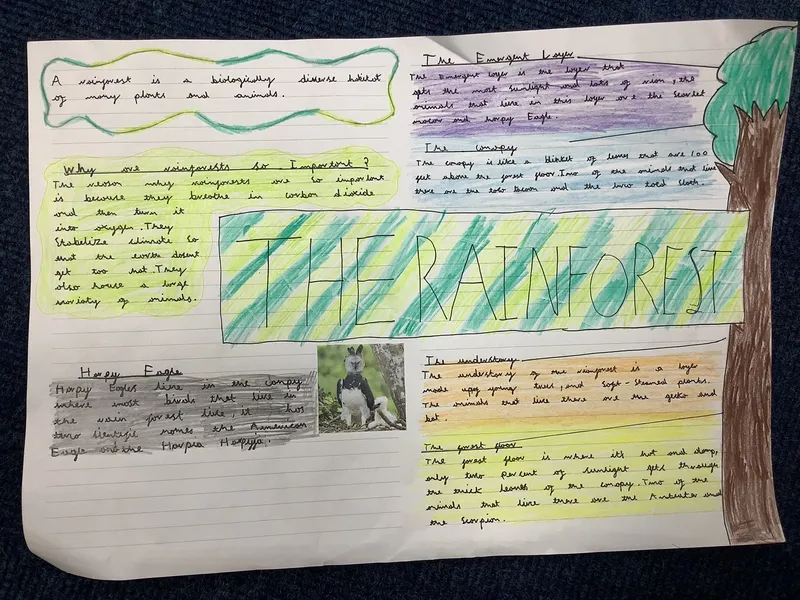 A rainforest is a biologically diverse habitat
of many plants and animals.
Why are rainforests so Important?
The reason why rainforests are so important
is because they breathe in carbon dioxide
and then turn it
into oxygen. They
Stabelize climate so
that the earth dosent
get too hot. They
also house a large
variaty of animals.
THE RAINFOREST
Harpy Eagle
Harpy Eagles live in the canpy
where most birds that live in
the rain forest live, it has
two sientific names the American
Eagle and the Harpia Harpyja.
The Emergent Layer
The Emergent layer is the layer that
gets the most sunlight and lots of rian, the
animals that live in this layer are the Scarlet
macaw and harpy Eagle.
The canopy
The canopy is like a blnket of leaves that are 100
feet above the forest floor. Two of the animals that live
there are the toco tucan and the two toed sloth.
The understory
The understory of the rainforest is a layer
made up young trees, and soft-stemed plants.
The animals that live there are the gecko and
bat.
The forest floor
The forest floor is where it's hot and damp,
only two percent of sunlight gets through
the thick leaves of the canopy. Two of the
animals that live there are the Anteater and
the Scorpion.